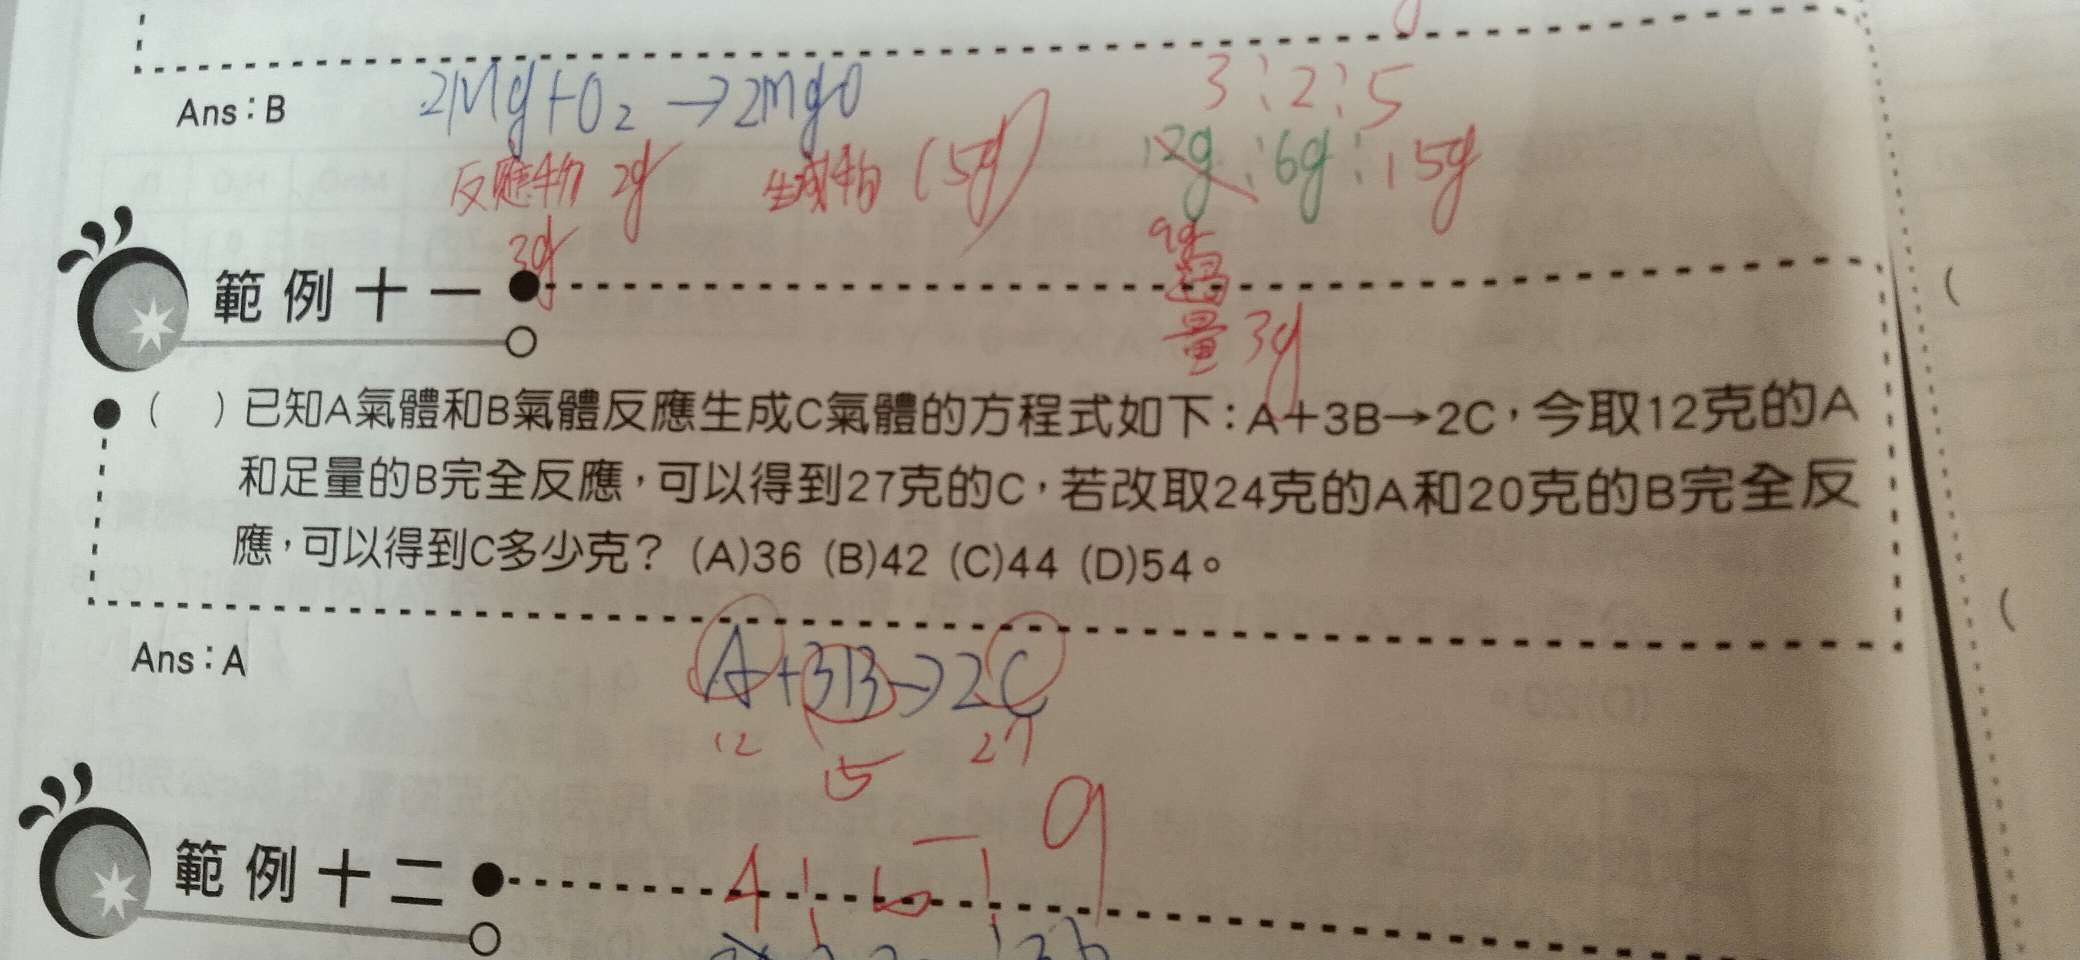 3：2：5
Ans：B 2Mg+O₂→2MgO
12g：6g：15g
反應物 2g 生成物 (5g)
3g
9g
過
量 3g
範例十一
( ) 已知A氣體和B氣體反應生成C氣體的方程式如下：A+3B→2C，今取12克的A
和足量的B完全反應，可以得到27克的C，若改取24克的A和20克的B完全反
應，可以得到C多少克？ (A)36 (B)42 (C)44 (D)54。
Ans：A
A+3B→2C
12 15 27
4：5：9
範例十二